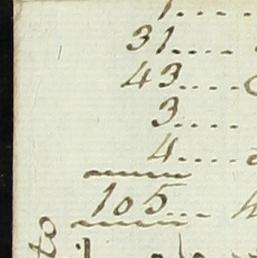 1....
31....
43....
3....
4....
105...
to